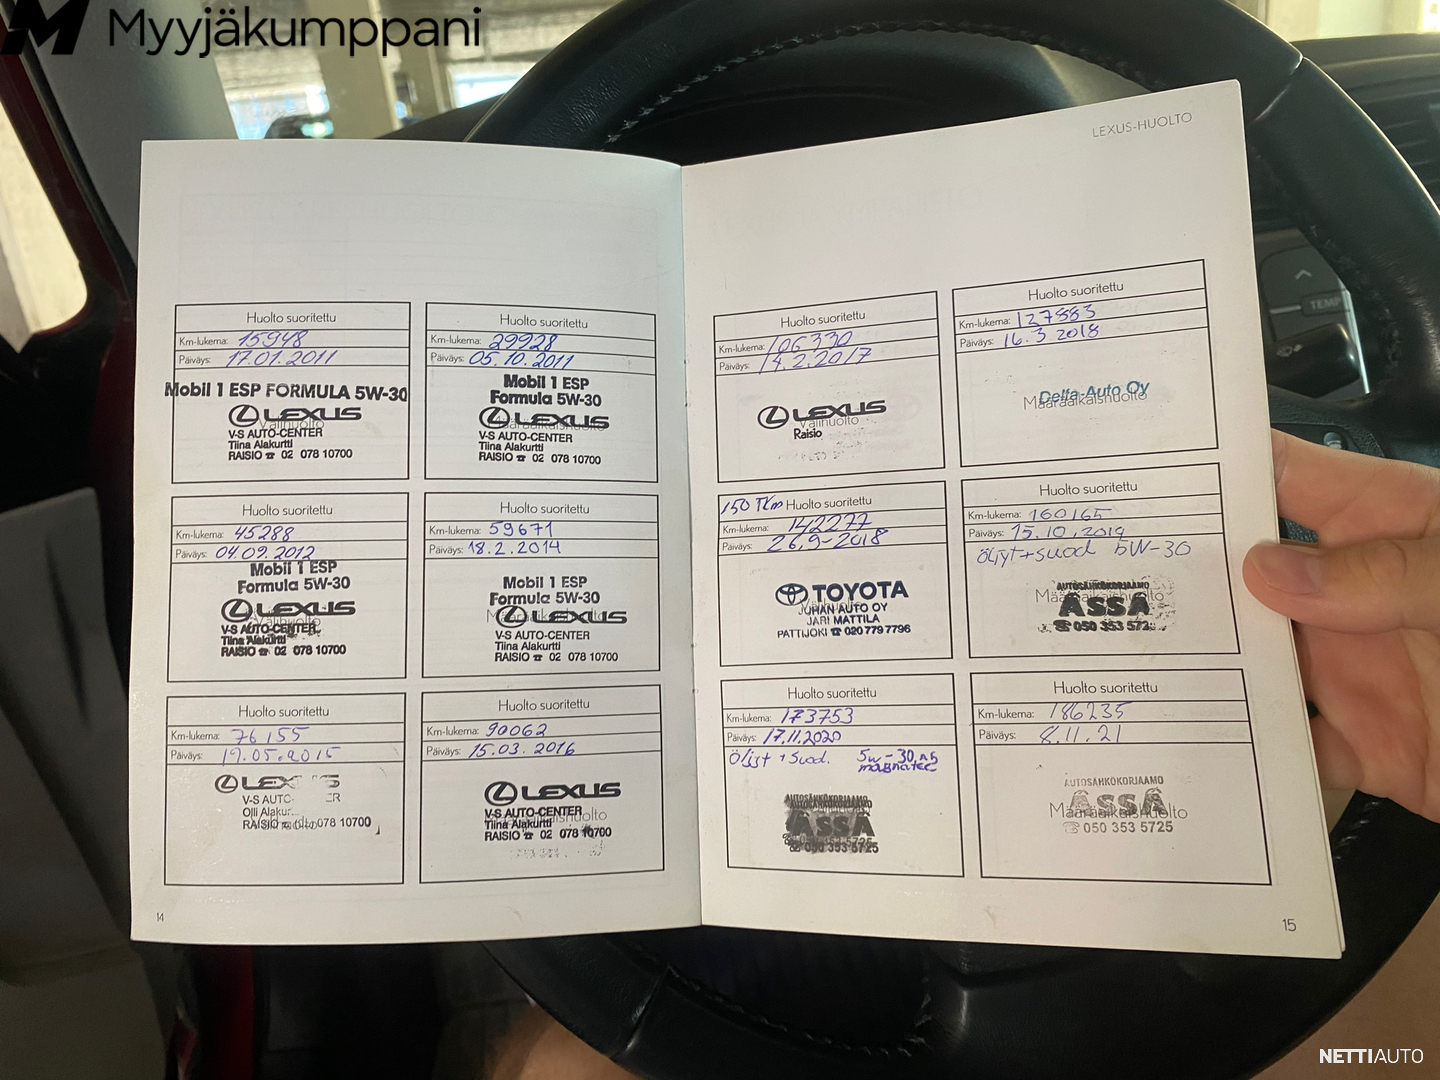 Myyjäkumppani
LEXUS-HUOLTO
Huolto suoritettu
Km-lukema: 15948
Päiväys: 17.01.2011
Mobil 1 ESP FORMULA 5W-30
LEXUS
Välihuolto
V-S AUTO-CENTER
Tiina Alakurtti
RAISIO ☎ 02 078 10700
Huolto suoritettu
Km-lukema: 29928
Päiväys: 05.10.2011
Mobil 1 ESP
Formula 5W-30
LEXUS
Määräaikaishuolto
V-S AUTO-CENTER
Tiina Alakurtti
RAISIO ☎ 02 078 10700
Huolto suoritettu
Km-lukema: 45288
Päiväys: 04.09.2012
Mobil 1 ESP
Formula 5W-30
LEXUS
Välihuolto
V-S AUTO-CENTER
Tiina Alakurtti
RAISIO ☎ 02 078 10700
Huolto suoritettu
Km-lukema: 59671
Päiväys: 18.2.2014
Mobil 1 ESP
Formula 5W-30
LEXUS
Määräaikaishuolto
V-S AUTO-CENTER
Tiina Alakurtti
RAISIO ☎ 02 078 10700
Huolto suoritettu
Km-lukema: 76155
Päiväys: 19.05.2015
LEXUS
V-S AUTO-
Olli Alakur
RAISIO ☎ 078 10700
Huolto suoritettu
Km-lukema: 90062
Päiväys: 15.03.2016
LEXUS
V-S AUTO-CENTER
Määräaikaishuolto
Tiina Alakurtti
RAISIO ☎ 02 078 10700
14
Huolto suoritettu
Km-lukema: 106330
Päiväys: 14.2.2017
LEXUS
Välihuolto
Raisio
Huolto suoritettu
Km-lukema: 127883
Päiväys: 16.3 2018
Delta-Auto Oy
Määräaikaishuolto
150 TKm Huolto suoritettu
Km-lukema: 142277
Päiväys: 26.9-2018
TOYOTA
Välihuolto
JUHAN AUTO OY
JARI MATTILA
PATTIJOKI ☎ 020 779 7796
Huolto suoritettu
Km-lukema: 160165
Päiväys: 15.10.2019
öljyt+suod 5W-30
AUTOSÄHKÖKORJAAMO
Määräaikaishuolto
ÄSSÄ
☎ 050 353 572
Huolto suoritettu
Km-lukema: 173753
Päiväys: 17.11.2020
Öljyt + Suod. 5W-30, A5
magnatec
AUTOSÄHKÖKORJAAMO
ÄSSÄ
☎ 050 353 5725
Huolto suoritettu
Km-lukema: 186235
Päiväys: 8.11.21
AUTOSÄHKÖKORJAAMO
ÄSSÄ
Määräaikaishuolto
☎ 050 353 5725
15
TEMP
NETTIAUTO